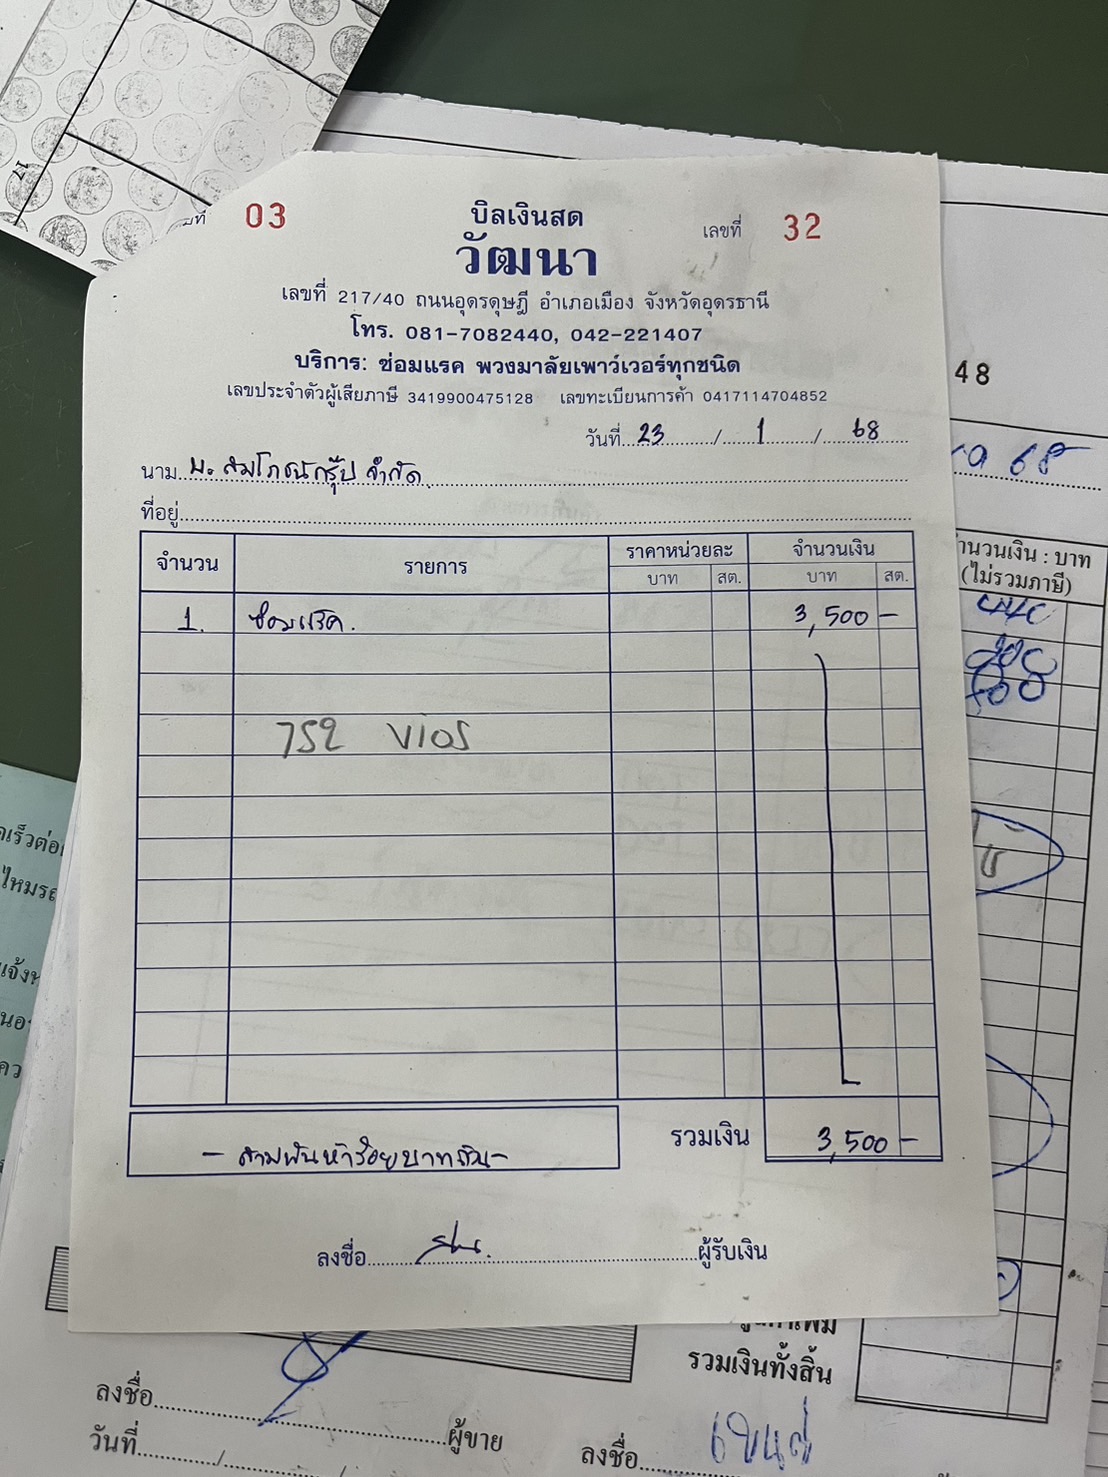 03
บิลเงินสด
เลขที่ 32
วัฒนา
เลขที่ 217/40 ถนนอุดรดุษฎี อำเภอเมือง จังหวัดอุดรธานี
โทร. 081-7082440, 042-221407
บริการ: ซ่อมแรค พวงมาลัยเพาว์เวอร์ทุกชนิด
เลขประจำตัวผู้เสียภาษี 3419900475128 เลขทะเบียนการค้า 0417114704852
วันที่ 23 / 1 / 68
นาม บ. สมโภชน์กรุ๊ป จำกัด
ที่อยู่
จำนวน รายการ ราคาหน่วยละ จำนวนเงิน
บาท สต. บาท สต.
1. ซ่อมแร็ค. 3,500 -
752 VIOS
รวมเงิน 3,500 -
- สามพันห้าร้อยบาทถ้วน -
ลงชื่อ ผู้รับเงิน
48
68
จำนวนเงิน : บาท
(ไม่รวมภาษี)
รวมเงินทั้งสิ้น
ลงชื่อ ผู้ขาย
วันที่ / /
ลงชื่อ